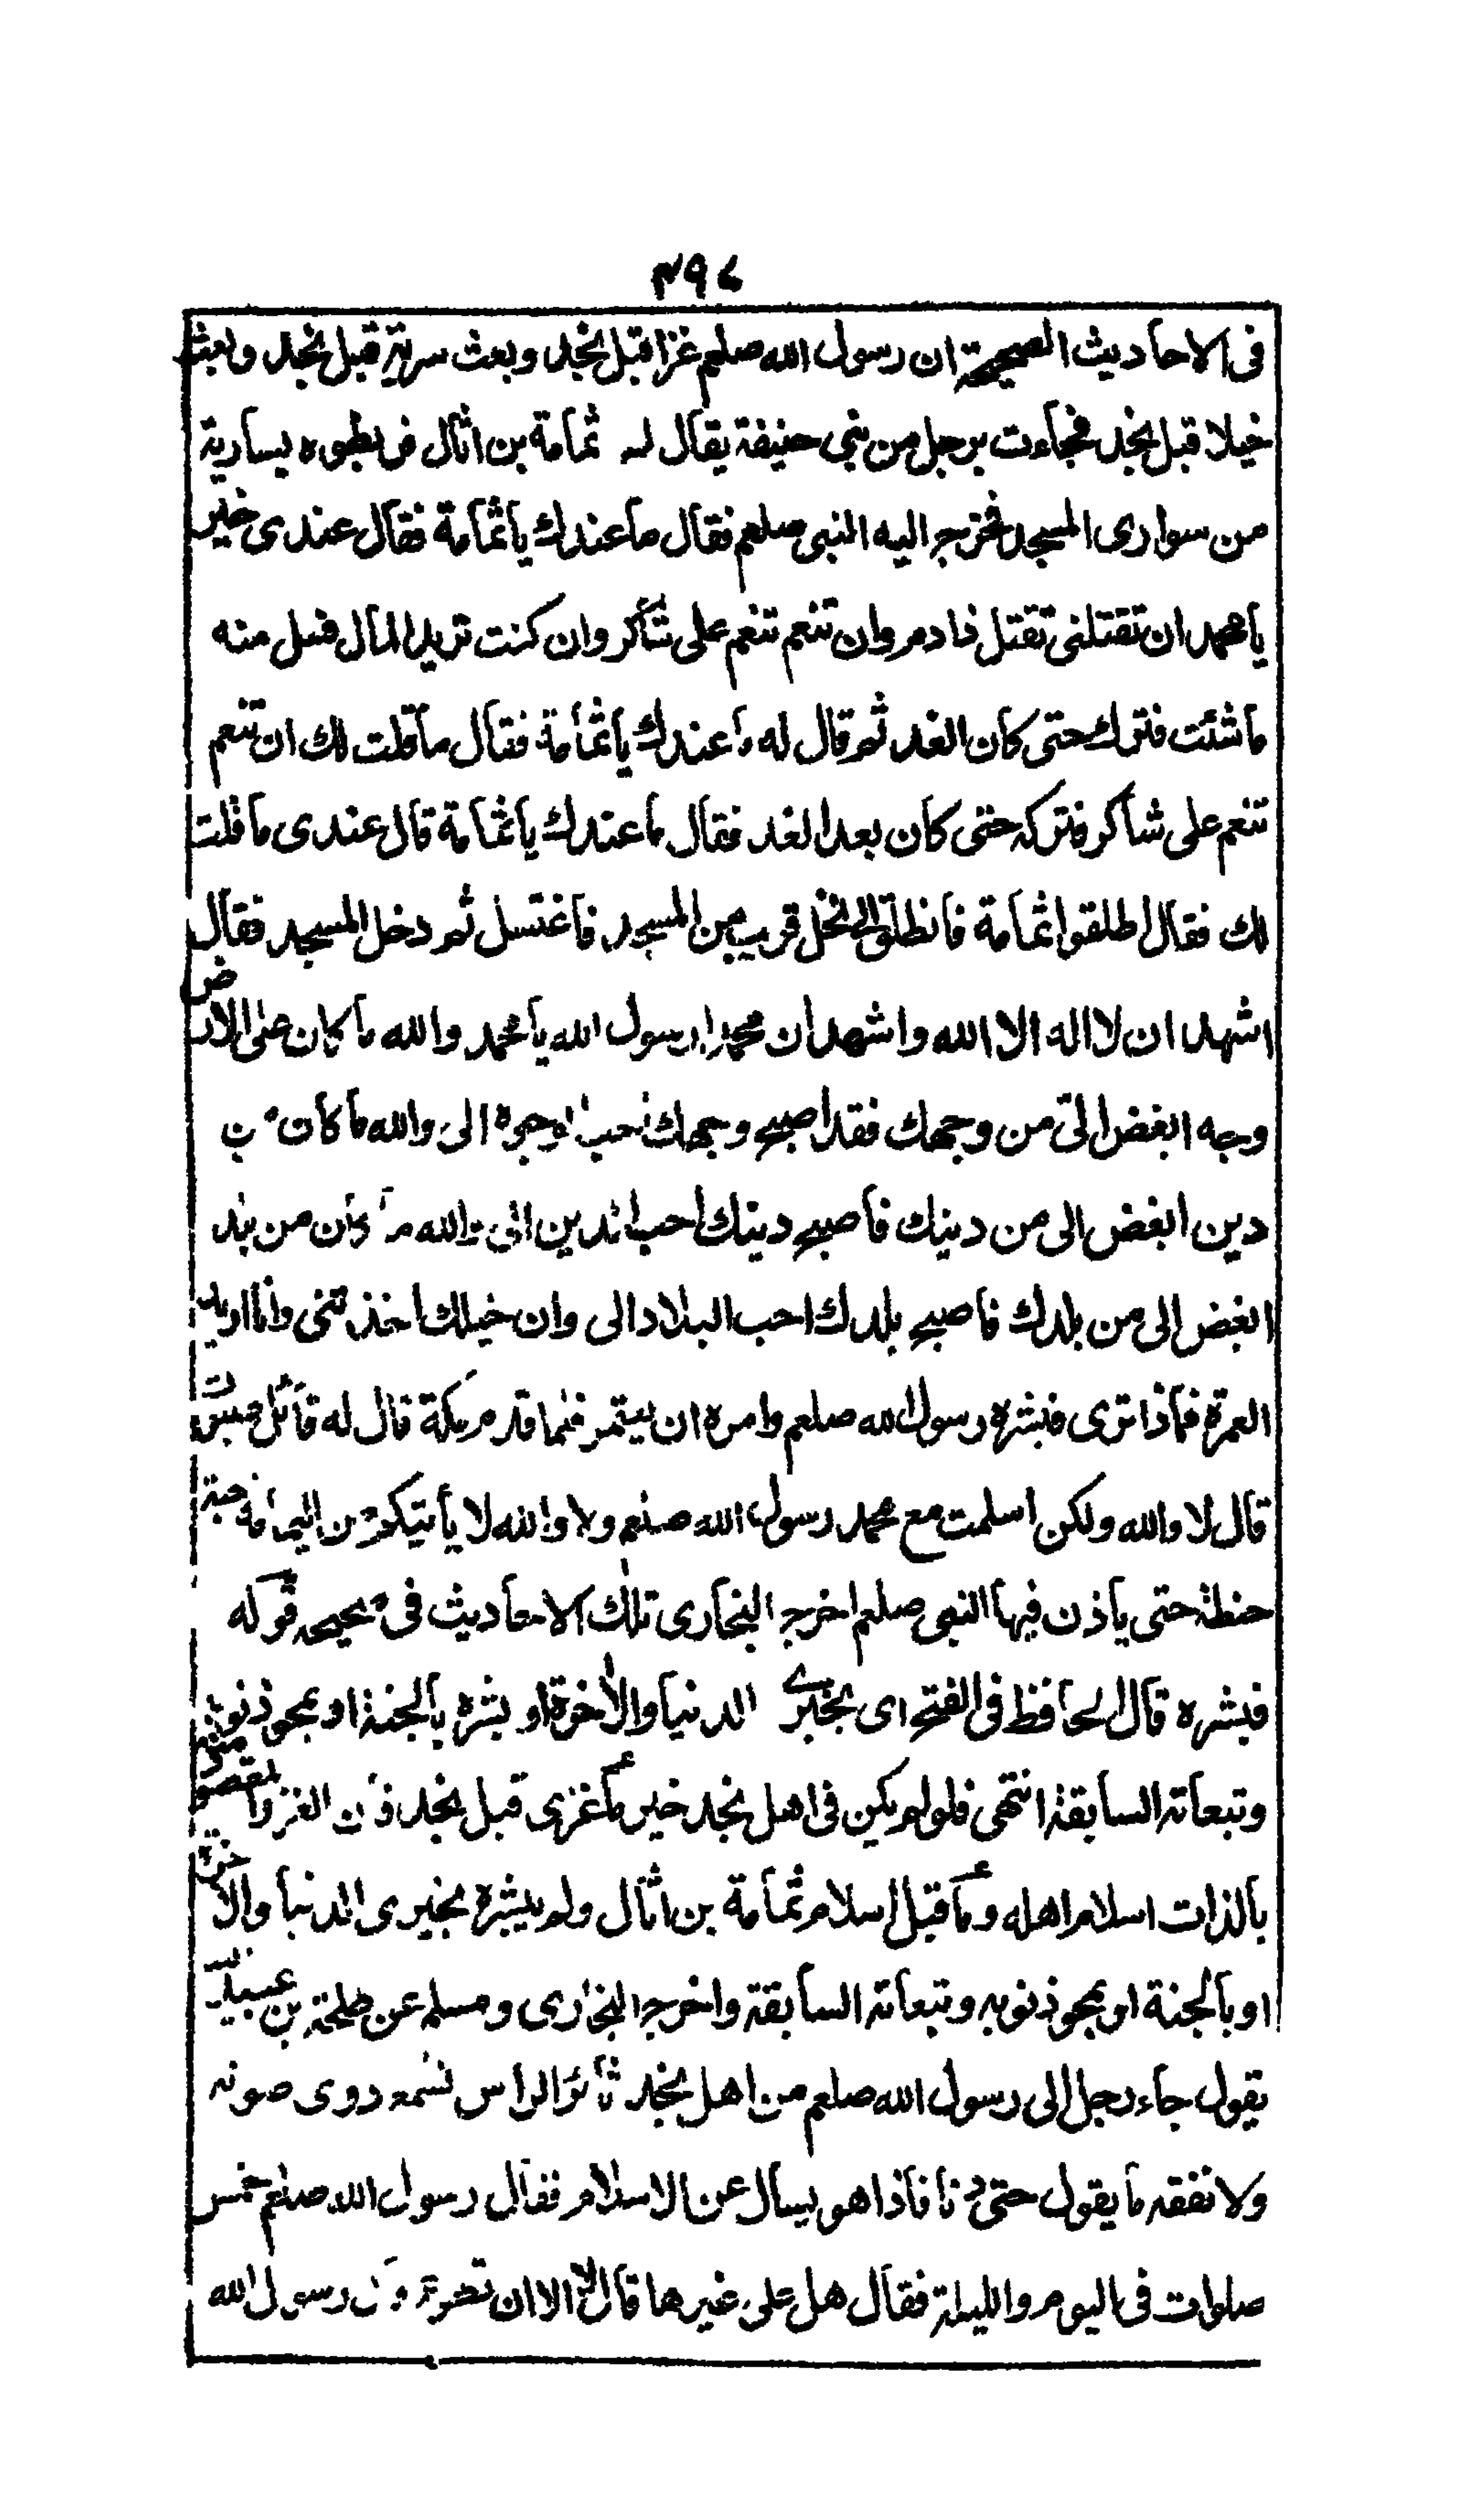 ٤٩٧
فى الاحاديث الصحيحة ان رسول الله صلعم غزا قبل نجد وبعث سرية قبل نجد وبعث
خيلا قبل نجد فجاءت برجل من بنى حنيفة يقال له ثمامة بن اثال فربطوه بسارية
من سوارى المسجد فخرج اليه النبى صلعم فقال ما عندك يا ثمامة فقال عندى خير
يا محمد ان تقتلنى تقتل ذا دم وان تنعم تنعم على شاكر وان كنت تريد المال فسل منه
ما شئت فترك حتى كان الغد ثم قال له ما عندك يا ثمامة فقال ما قلت لك ان تنعم
تنعم على شاكر فتركه حتى كان بعد الغد فقال ما عندك يا ثمامة قال عندى ما قلت
لك فقال اطلقوا ثمامة فانطلق الى نخل قريب من المسجد فاغتسل ثم دخل المسجد فقال
اشهد ان لا اله الا الله واشهد ان محمدا رسول الله يا محمد والله ما كان على الارض
وجه ابغض الى من وجهك فقد اصبح وجهك احب الوجوه الى والله ما كان من
دين ابغض الى من دينك فاصبح دينك احب الدين الى والله ما كان من بلد
ابغض الى من بلدك فاصبح بلدك احب البلاد الى وان خيلك اخذتنى وانا اريد
العمرة فماذا ترى فبشره رسول الله صلعم وامره ان يعتمر فلما قدم مكة قال له قائل صبوت
قال لا والله ولكن اسلمت مع محمد رسول الله صلعم ولا والله لا يأتيكم من اليمامة حبة
حنطة حتى ياذن فيها النبى صلعم اخرج البخارى تلك الاحاديث فى صحيحه قوله
فبشره قال الحافظ فى الفتح اى بخيرى الدنيا والاخرة او بشره بالجنة او بمحو ذنوبه
وتبعاته السابقة انتهى فلو لم يكن فى اهل نجد خير لما غزى قبل نجد فان الغزو المقصود منه
بالذات اسلام اهله ولما قبل اسلام ثمامة بن اثال ولم يبشره بخيرى الدنيا والاخرة
او بالجنة او بمحو ذنوبه وتبعاته السابقة واخرج البخارى ومسلم عن طلحة بن عبيد الله
يقول جاء رجل الى رسول الله صلعم من اهل نجد ثائر الراس نسمع دوى صوته
ولا نفقه ما يقول حتى دنا فاذا هو يسال عن الاسلام فقال رسول الله صلعم خمس
صلوات فى اليوم والليلة فقال هل على غيرها قال لا الا ان تطوع قال رسول الله